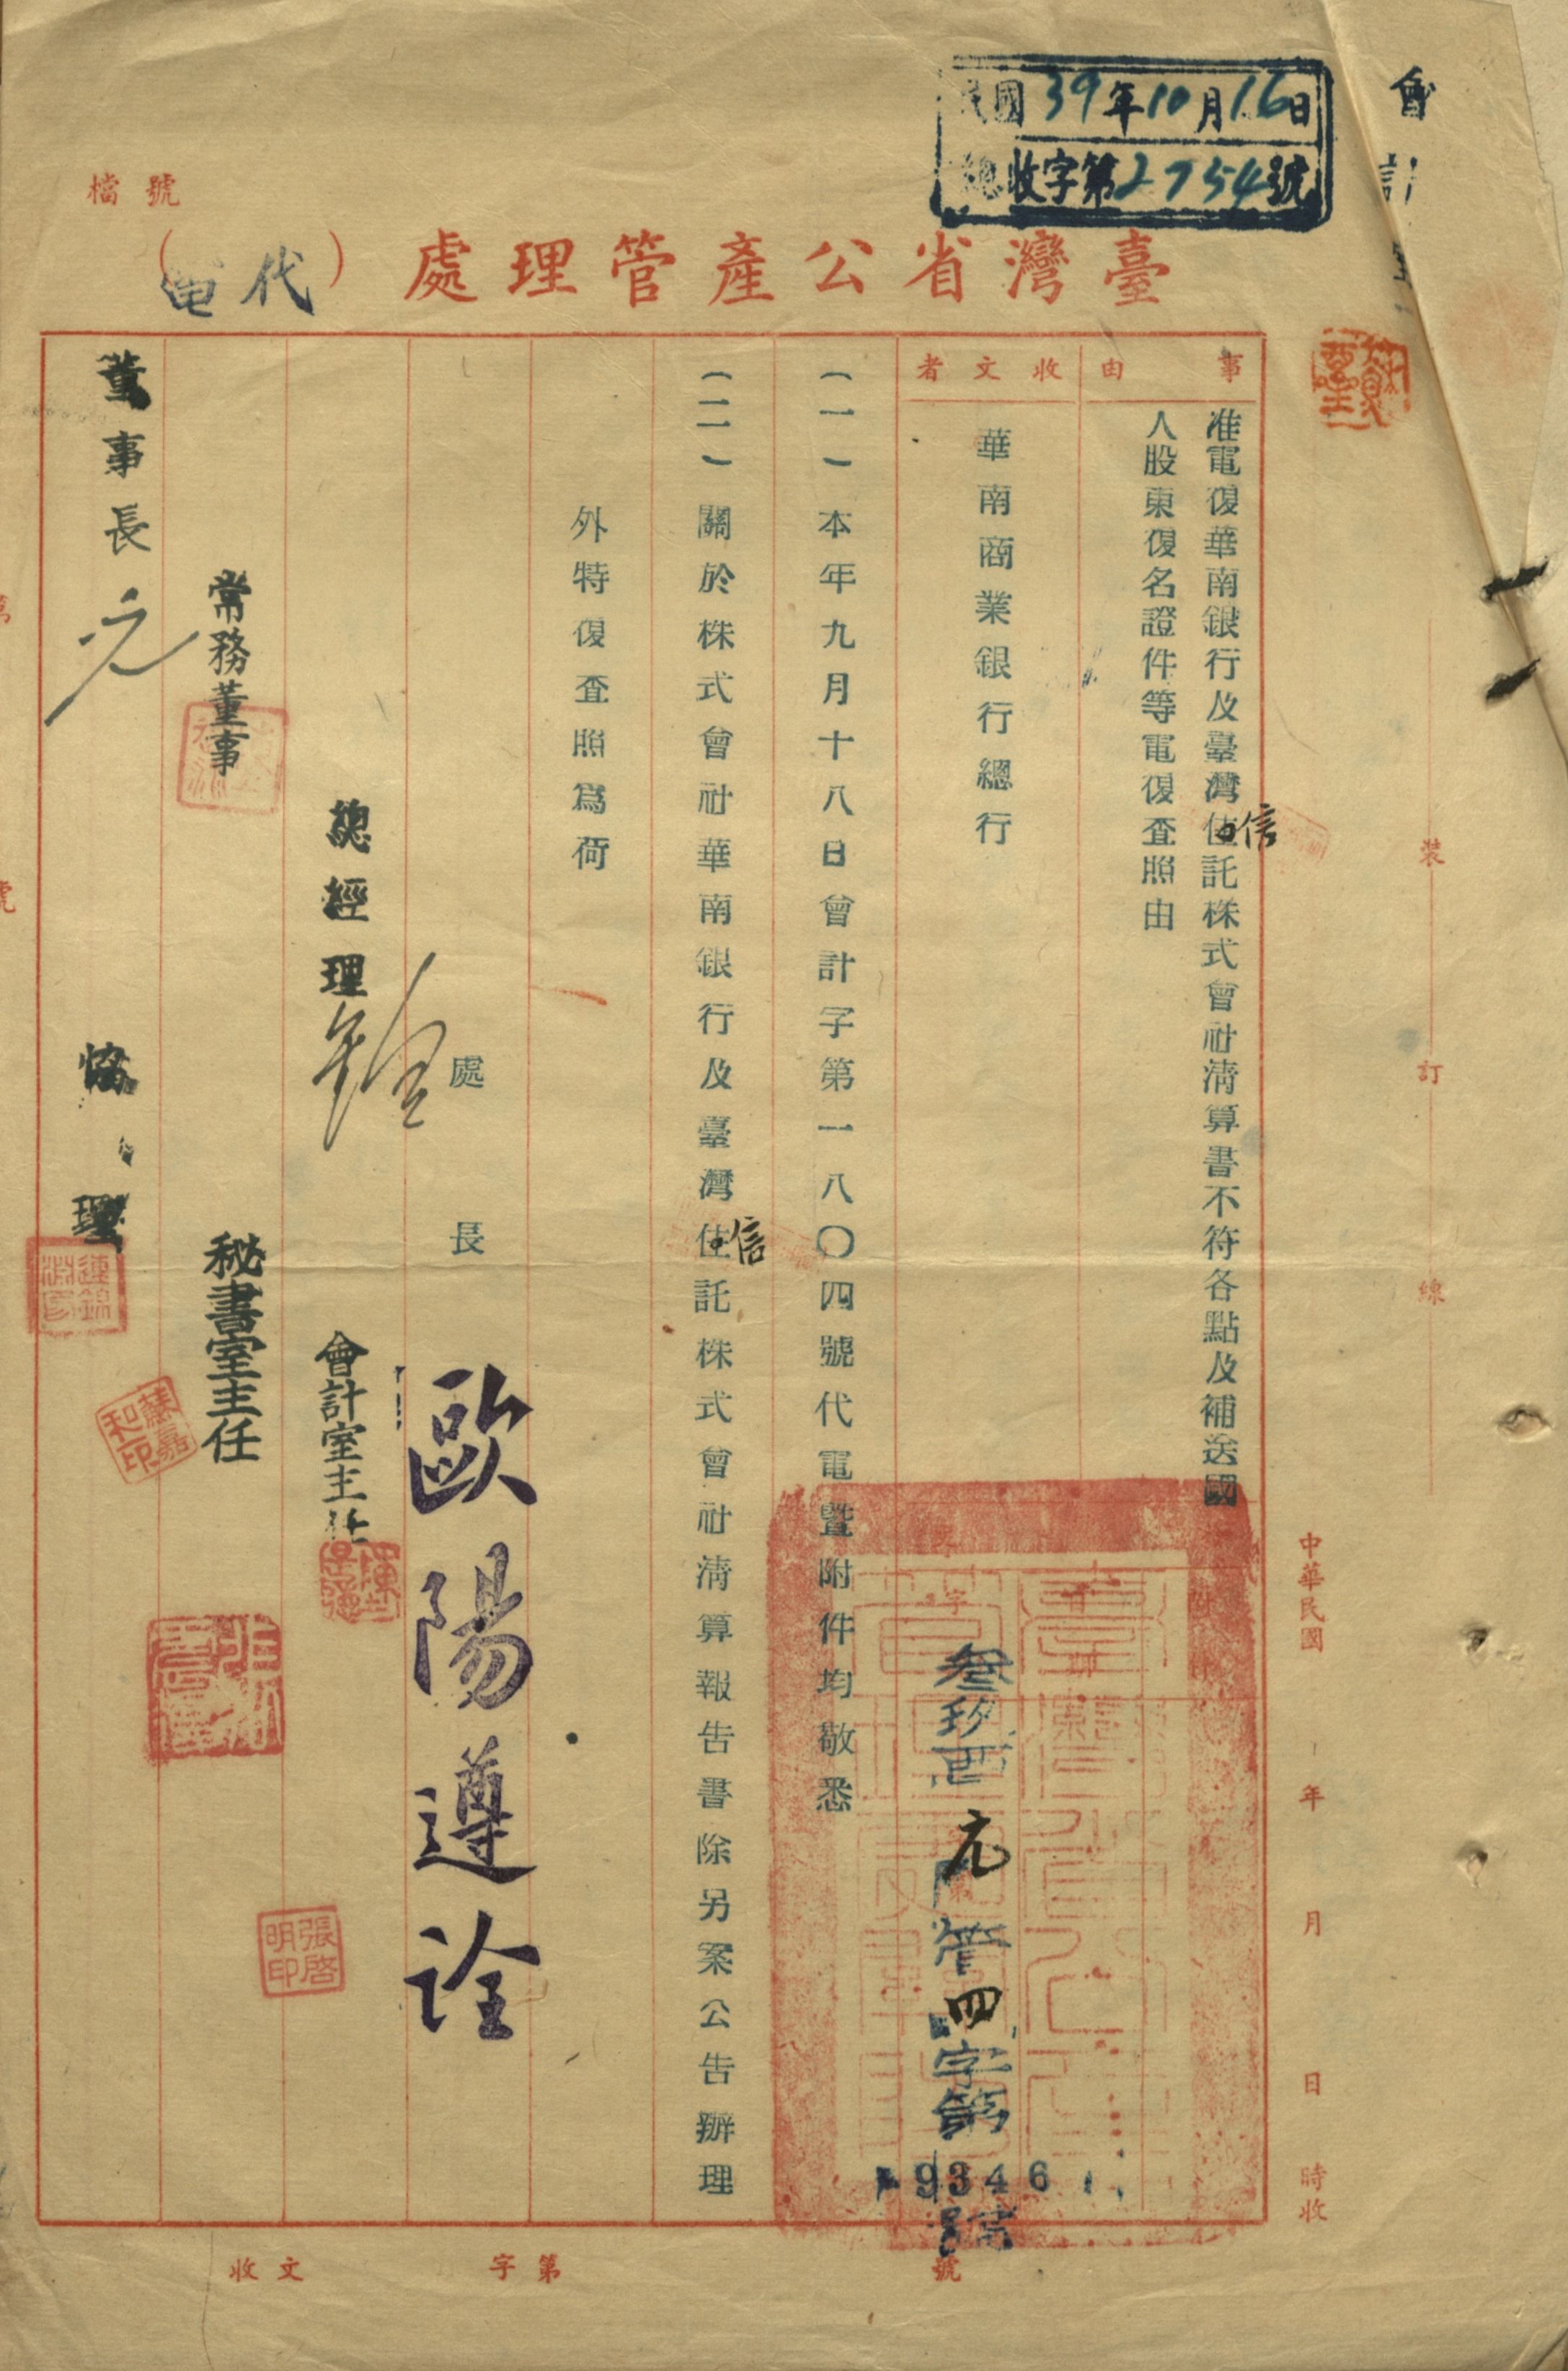 民國39年10月16日
總收字第2754號
會計
檔號
臺灣省公產管理處（代電）
事由
准電復華南銀行及臺灣信託株式會社清算書不符各點及補送國
人股東復名證件等電復查照由
收文者
華南商業銀行總行
叁玖酉元管四字第
9346
號
（一）本年九月十八日會計字第一八〇四號代電暨附件均敬悉
（二）關於株式會社華南銀行及臺灣信託株式會社清算報告書除另案公告辦理
外特復查照爲荷
處長
歐陽遵詮
總經理
會計室主任
張啓明印
常務董事
秘書室主任
蘇嘉和印
董事長
協理
中華民國 年 月 日 時收
裝訂線
收文 字第 號